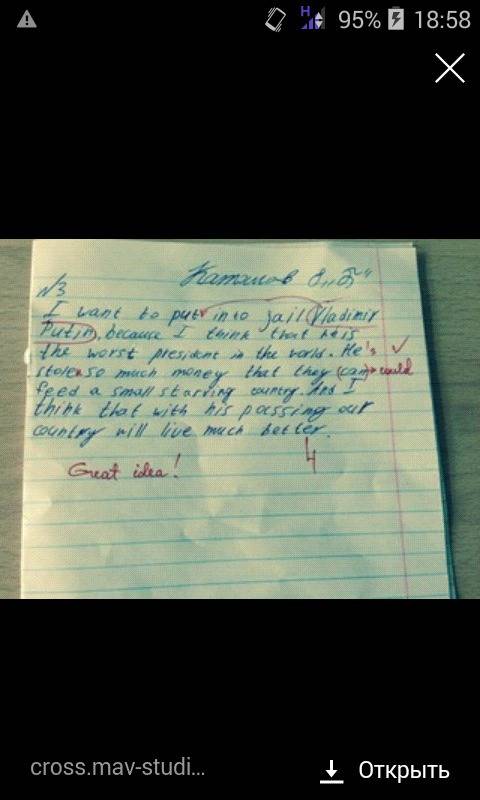 H
95%
18:58
Катанов 8 „Б"
№3
I want to put into jail Vladimir
Putin, because I think that he is
the worst president in the world. He's
stolen so much money that they (can) could
feed a small starving country. And I
think that with his passing our
country will live much better.
4
Great idea!
cross.mav-studi...
Открыть